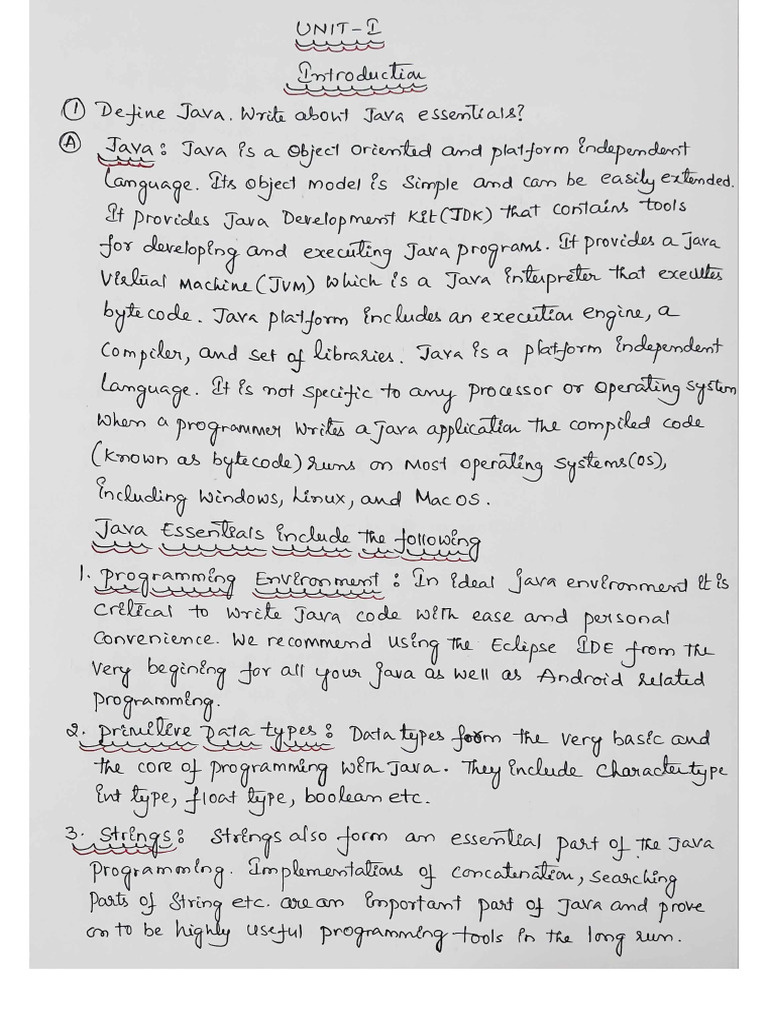 UNIT-I
Introduction
① Define Java. Write about Java essentials?
Ⓐ Java: Java is a object oriented and platform independent
Language. Its object model is simple and can be easily extended.
It provides Java Development Kit (JDK) that contains tools
for developing and executing Java programs. It provides a Java
Virtual Machine (JVM) which is a Java interpreter that executes
bytecode. Java platform includes an execution engine, a
compiler, and set of libraries. Java is a platform independent
Language. It is not specific to any processor or operating system
when a programmer writes a Java application the compiled code
(known as bytecode) runs on most operating systems (OS),
including Windows, Linux, and Mac OS.
Java Essentials include the following
1. Programming Environment: In ideal java environment it is
critical to write Java code with ease and personal
convenience. We recommend using the Eclipse IDE from the
very begining for all your java as well as Android related
programming.
2. primitive Data types: Data types form the very basic and
the core of programming with Java. They include Character type
int type, float type, boolean etc.
3. Strings: Strings also form an essential part of the Java
programming. Implementations of concatenation, searching
parts of String etc. are an important part of Java and prove
on to be highly useful programming tools in the long run.